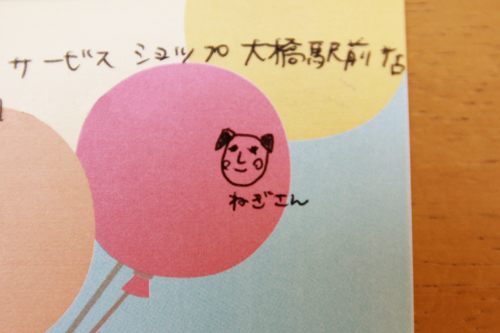 サービス ショップ 大橋駅前店
ねぎさん